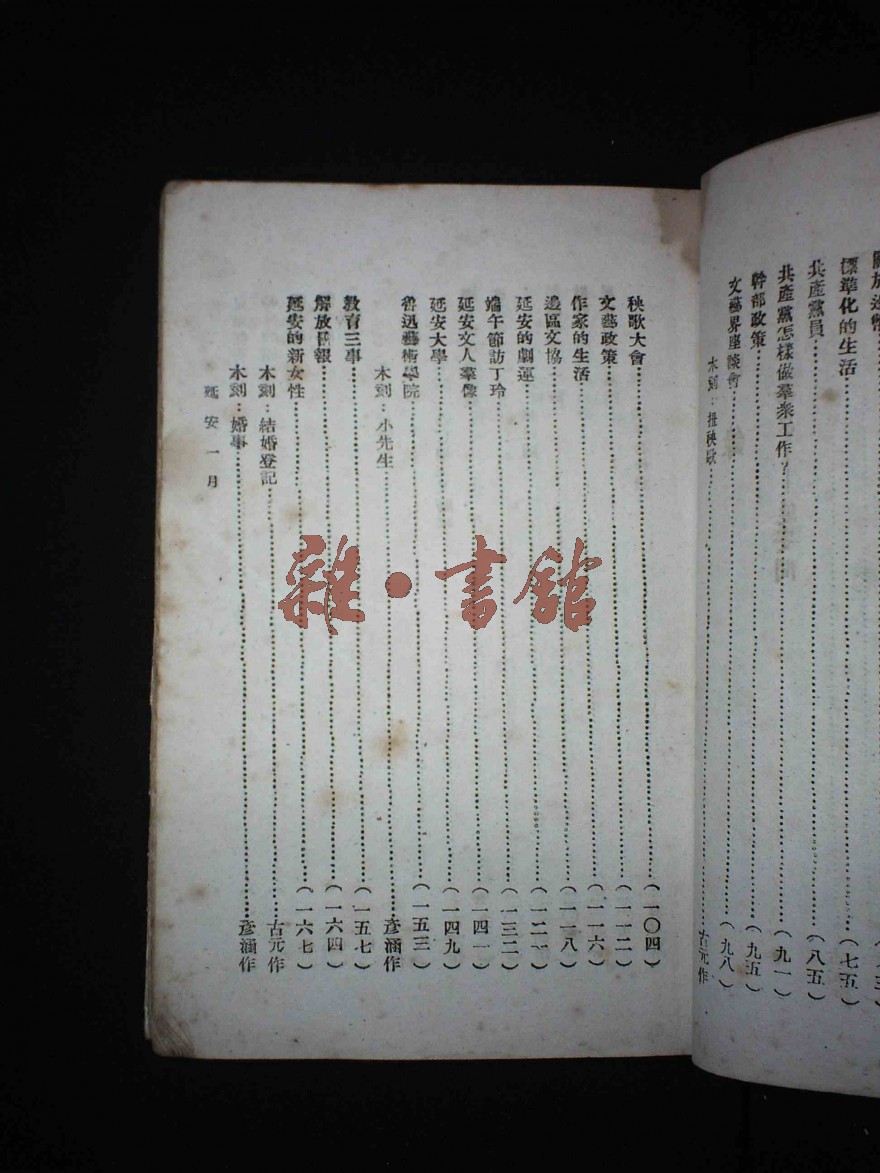 標準化的生活⋯⋯(七五)
共產黨員⋯⋯(八五)
共產黨怎樣做羣衆工作?⋯⋯(九一)
幹部政策⋯⋯(九五)
文藝界座談會⋯⋯(九八)
木刻:扭秧歌⋯⋯古元作
秧歌大會⋯⋯(一〇四)
文藝政策⋯⋯(一一二)
作家的生活⋯⋯(一一六)
邊區文協⋯⋯(一一八)
延安的劇運⋯⋯(一二一)
端午節訪丁玲⋯⋯(一三二)
延安文人羣像⋯⋯(一四一)
延安大學⋯⋯(一四九)
魯迅藝術學院⋯⋯(一五三)
木刻:小先生⋯⋯彥涵作
教育三事⋯⋯(一五七)
解放日報⋯⋯(一六四)
延安的新女性⋯⋯(一六七)
木刻:結婚登記⋯⋯古元作
木刻:婚事⋯⋯彥涵作
延安一月
雜·書館